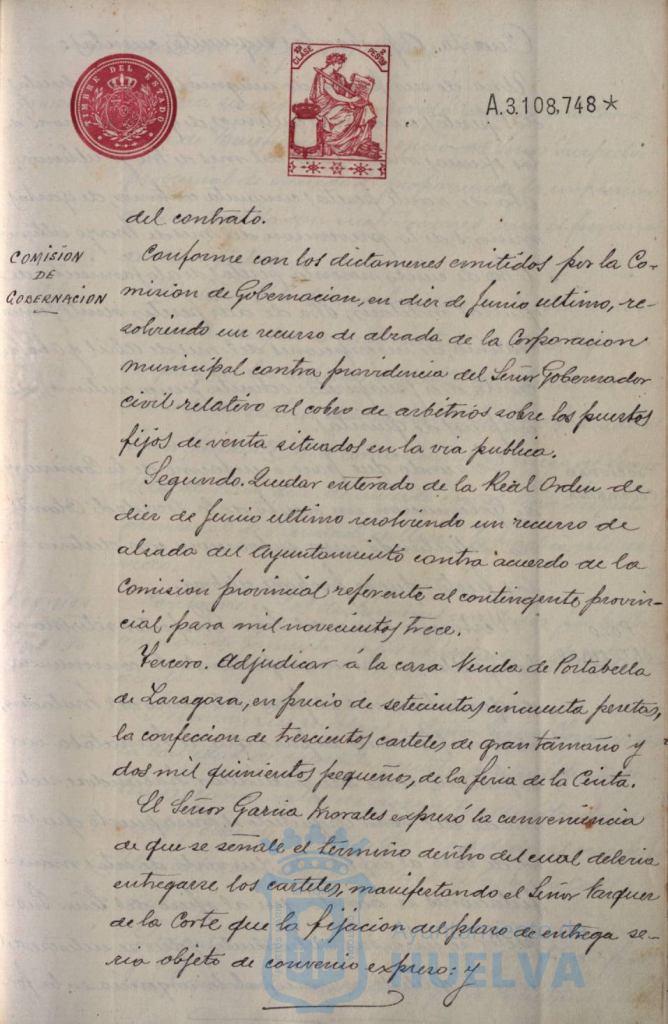 TIMBRE DEL ESTADO
10ª CLASE
2 PESETAS
A.3.108,748*
del contrato.
COMISIÓN
DE
GOBERNACIÓN
Conforme con los dictamenes emitidos por la Co-
mision de Gobernacion, en diez de Junio ultimo, re-
solviendo un recurso de alzada de la Corporacion
municipal contra providencia del Señor Gobernador
civil relativo al cobro de arbitrios sobre los puestos
fijos de venta situados en la via publica.
Segundo. Quedar enterado de la Real Orden de
diez de Junio ultimo resolviendo un recurso de
alzada del Ayuntamiento contra acuerdo de la
Comision provincial referente al contingente provin-
cial para mil novecientos trece.
Tercero. Adjudicar á la casa Viuda de Portabella
de Zaragoza, en precio de setecientas cincuenta pesetas,
la confeccion de trescientos carteles de gran tamaño y
dos mil quinientos pequeños, de la feria de la Cinta.
El Señor Garcia Morales expresó la conveniencia
de que se señale el termino dentro del cual deberia
entregarse los carteles, manifestando el Señor Vazquez
de la Corte que la fijacion del plazo de entrega se-
ria objeto de convenio expreso: y
HUELVA